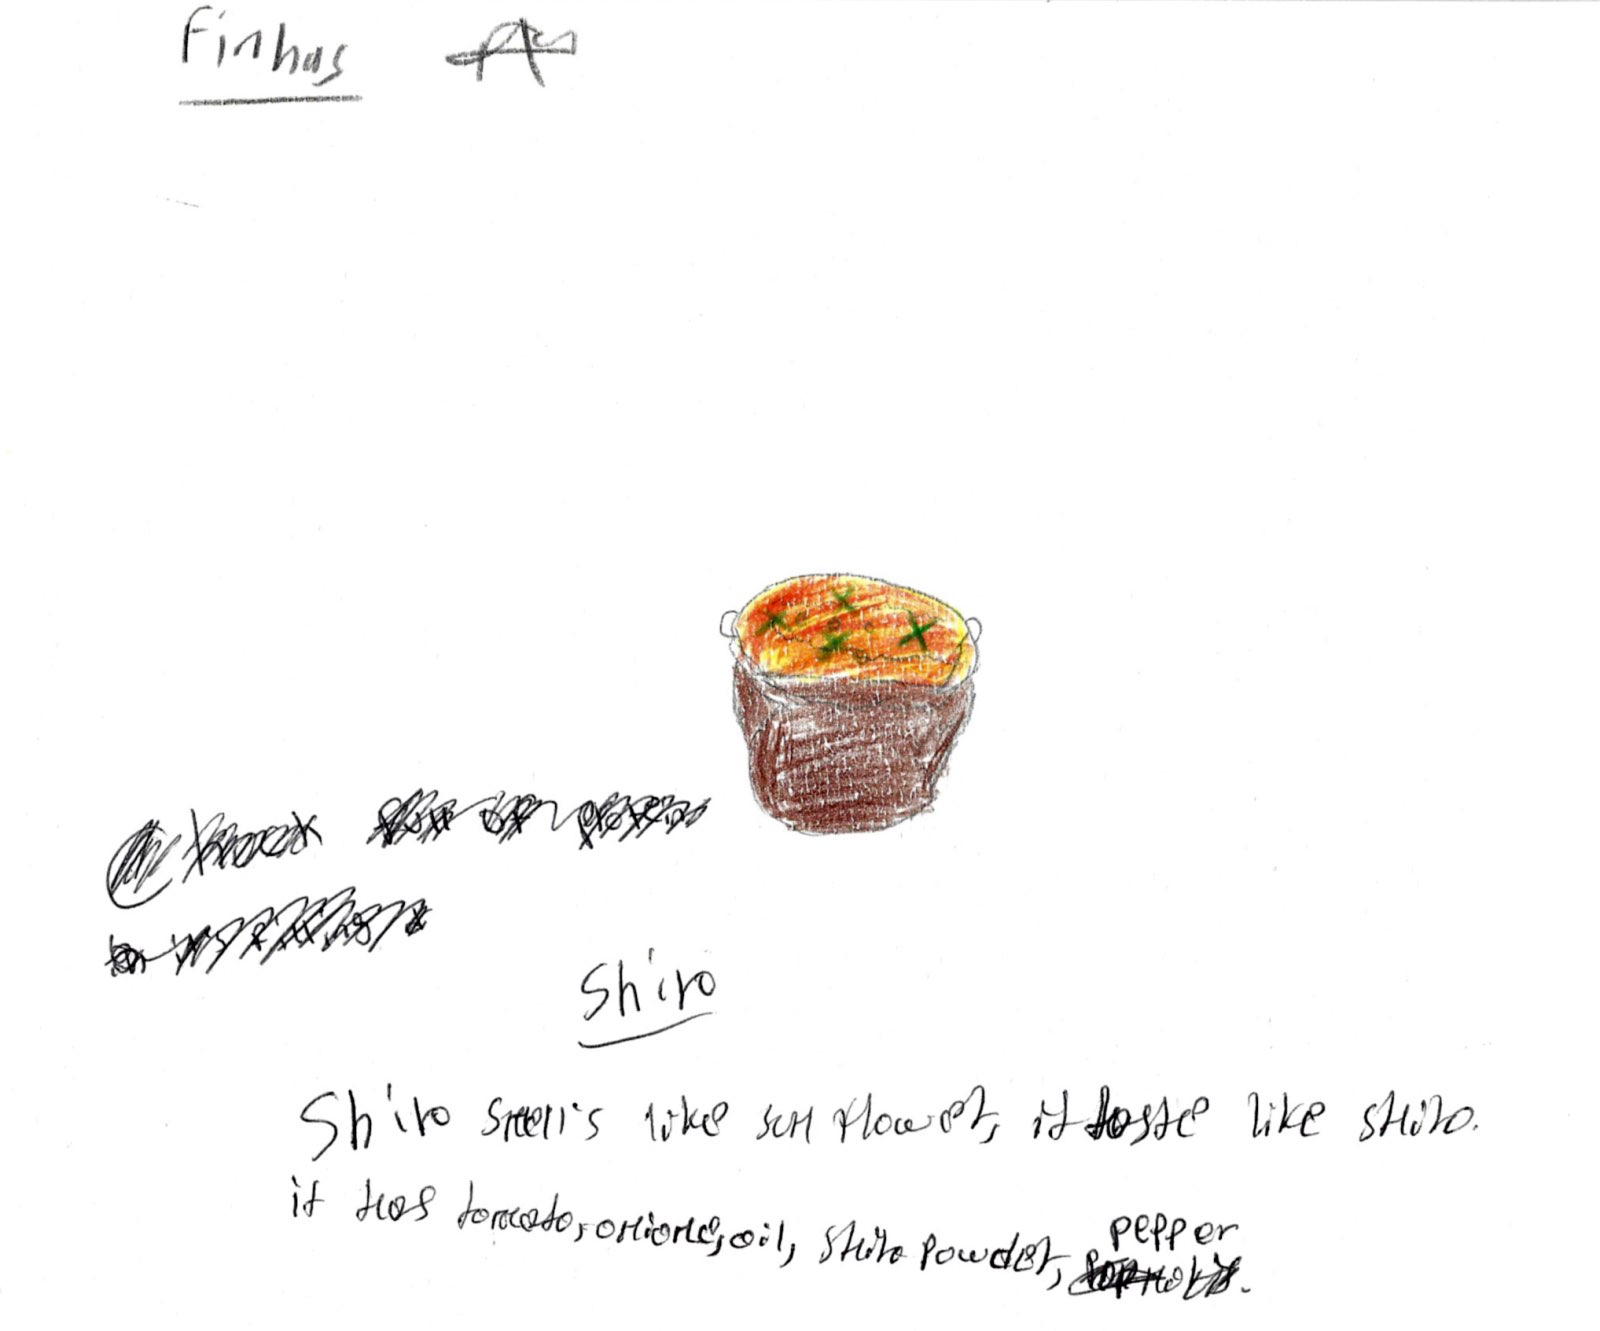 Finhas
Shiro
Shiro smells like sun flower, it taste like shiro.
it has tomato, onione, oil, shiro powder, pepper